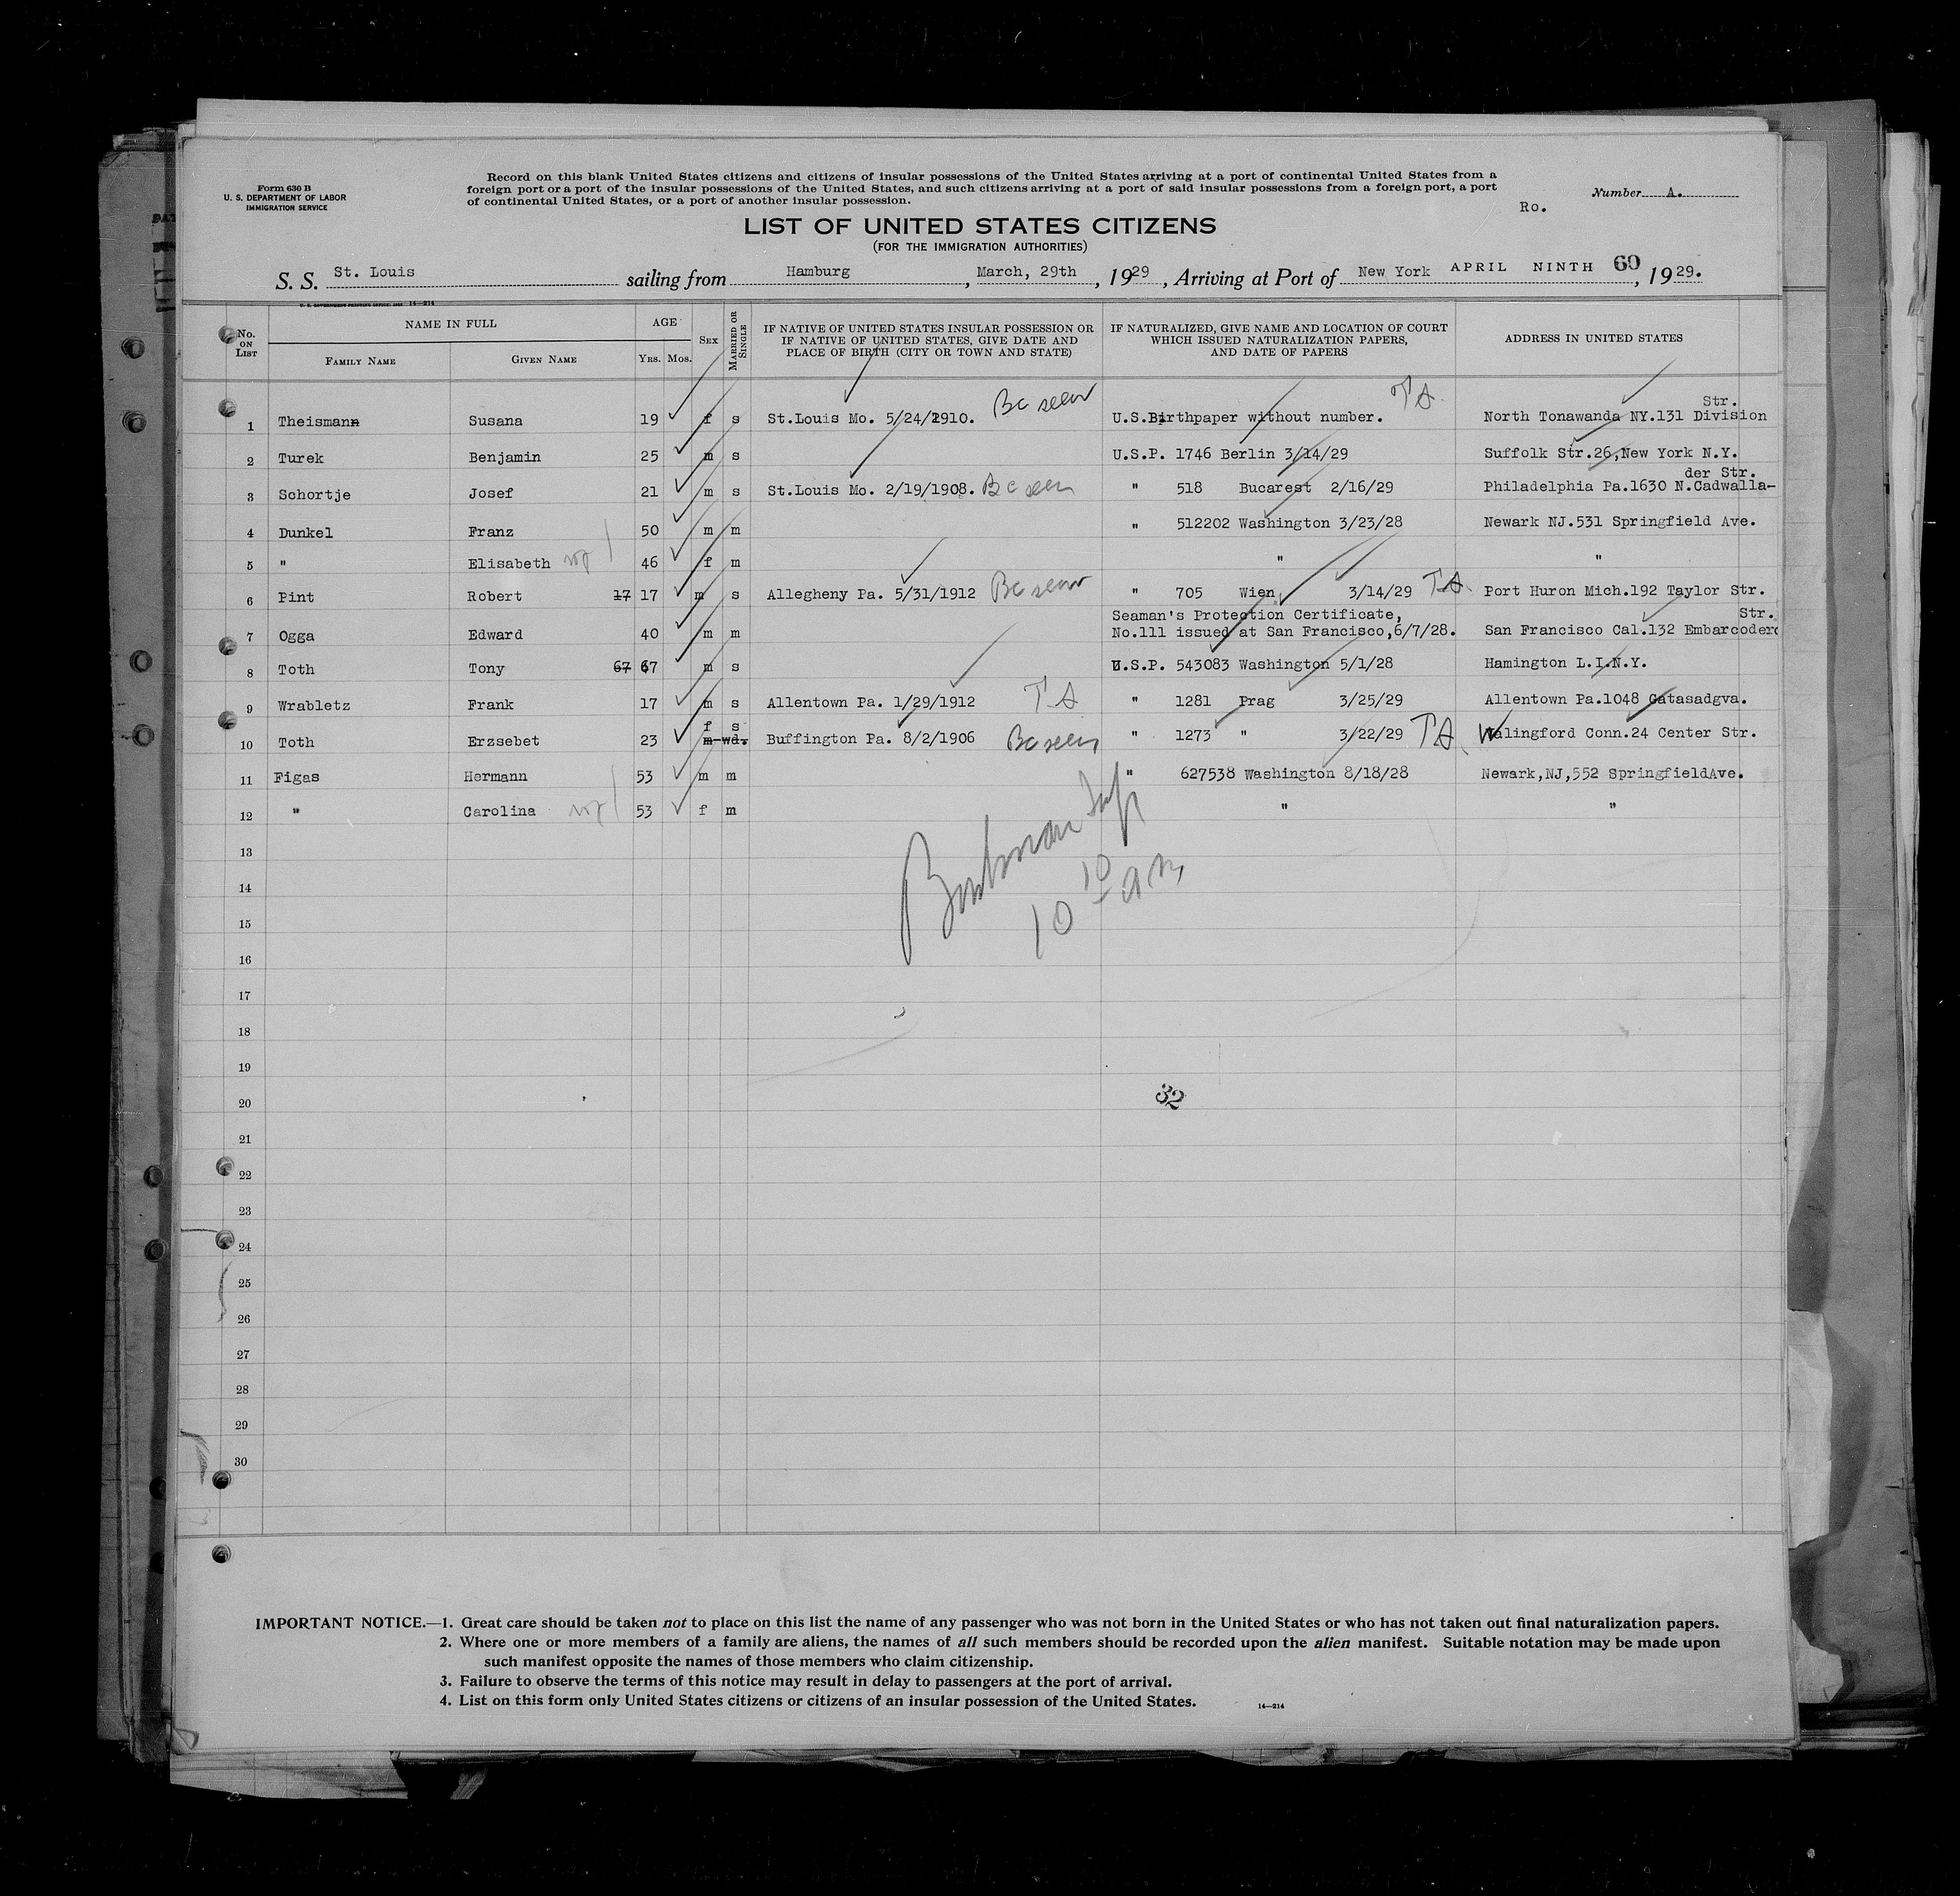 Form 630 B
U. S. DEPARTMENT OF LABOR
IMMIGRATION SERVICE
Record on this blank United States citizens and citizens of insular possessions of the United States arriving at a port of continental United States from a
foreign port or a port of the insular possessions of the United States, and such citizens arriving at a port of said insular possessions from a foreign port, a port
of continental United States, or a port of another insular possession.
Number A.
Ro.
LIST OF UNITED STATES CITIZENS
(FOR THE IMMIGRATION AUTHORITIES)
S. S. St. Louis sailing from Hamburg, March, 29th, 1929, Arriving at Port of New York APRIL NINTH 60, 1929.
14—214
No. ON LIST
NAME IN FULL
FAMILY NAME
GIVEN NAME
AGE
YRS. MOS.
SEX
MARRIED OR SINGLE
IF NATIVE OF UNITED STATES INSULAR POSSESSION OR
IF NATIVE OF UNITED STATES, GIVE DATE AND
PLACE OF BIRTH (CITY OR TOWN AND STATE)
IF NATURALIZED, GIVE NAME AND LOCATION OF COURT
WHICH ISSUED NATURALIZATION PAPERS,
AND DATE OF PAPERS
ADDRESS IN UNITED STATES
1 Theismann Susana 19 f s St.Louis Mo. 5/24/1910. Bc seen U.S.Birthpaper without number. TA North Tonawanda NY.131 Division Str.
2 Turek Benjamin 25 m s U.S.P. 1746 Berlin 3/14/29 Suffolk Str.26,New York N.Y.
3 Schortje Josef 21 m s St.Louis Mo. 2/19/1908. Bc seen " 518 Bucarest 2/16/29 Philadelphia Pa.1630 N.Cadwalla-der Str.
4 Dunkel Franz 50 m m " 512202 Washington 3/23/28 Newark NJ.531 Springfield Ave.
5 " Elisabeth 46 f m " "
6 Pint Robert 17 17 m s Allegheny Pa. 5/31/1912 Bc seen " 705 Wien 3/14/29 TA Port Huron Mich.192 Taylor Str.
7 Ogga Edward 40 m m Seaman's Protection Certificate,
No.111 issued at San Francisco,6/7/28. San Francisco Cal.132 Embarcodero Str.
8 Toth Tony 67 67 m s U.S.P. 543083 Washington 5/1/28 Hamington L.I.N.Y.
9 Wrabletz Frank 17 m s Allentown Pa. 1/29/1912 TA " 1281 Prag 3/25/29 Allentown Pa.1048 Catasadgva.
f s
10 Toth Erzsebet 23 m wd. Buffington Pa. 8/2/1906 Bc seen " 1273 " 3/22/29 TA Walingford Conn.24 Center Str.
11 Figas Hermann 53 m m " 627538 Washington 8/18/28 Newark,NJ,552 SpringfieldAve.
12 " Carolina 53 f m " "
13
14
10 10 am
15
16
17
18
19
20
32
21
22
23
24
25
26
27
28
29
30
IMPORTANT NOTICE.—1. Great care should be taken not to place on this list the name of any passenger who was not born in the United States or who has not taken out final naturalization papers.
2. Where one or more members of a family are aliens, the names of all such members should be recorded upon the alien manifest. Suitable notation may be made upon
such manifest opposite the names of those members who claim citizenship.
3. Failure to observe the terms of this notice may result in delay to passengers at the port of arrival.
4. List on this form only United States citizens or citizens of an insular possession of the United States.
14—214